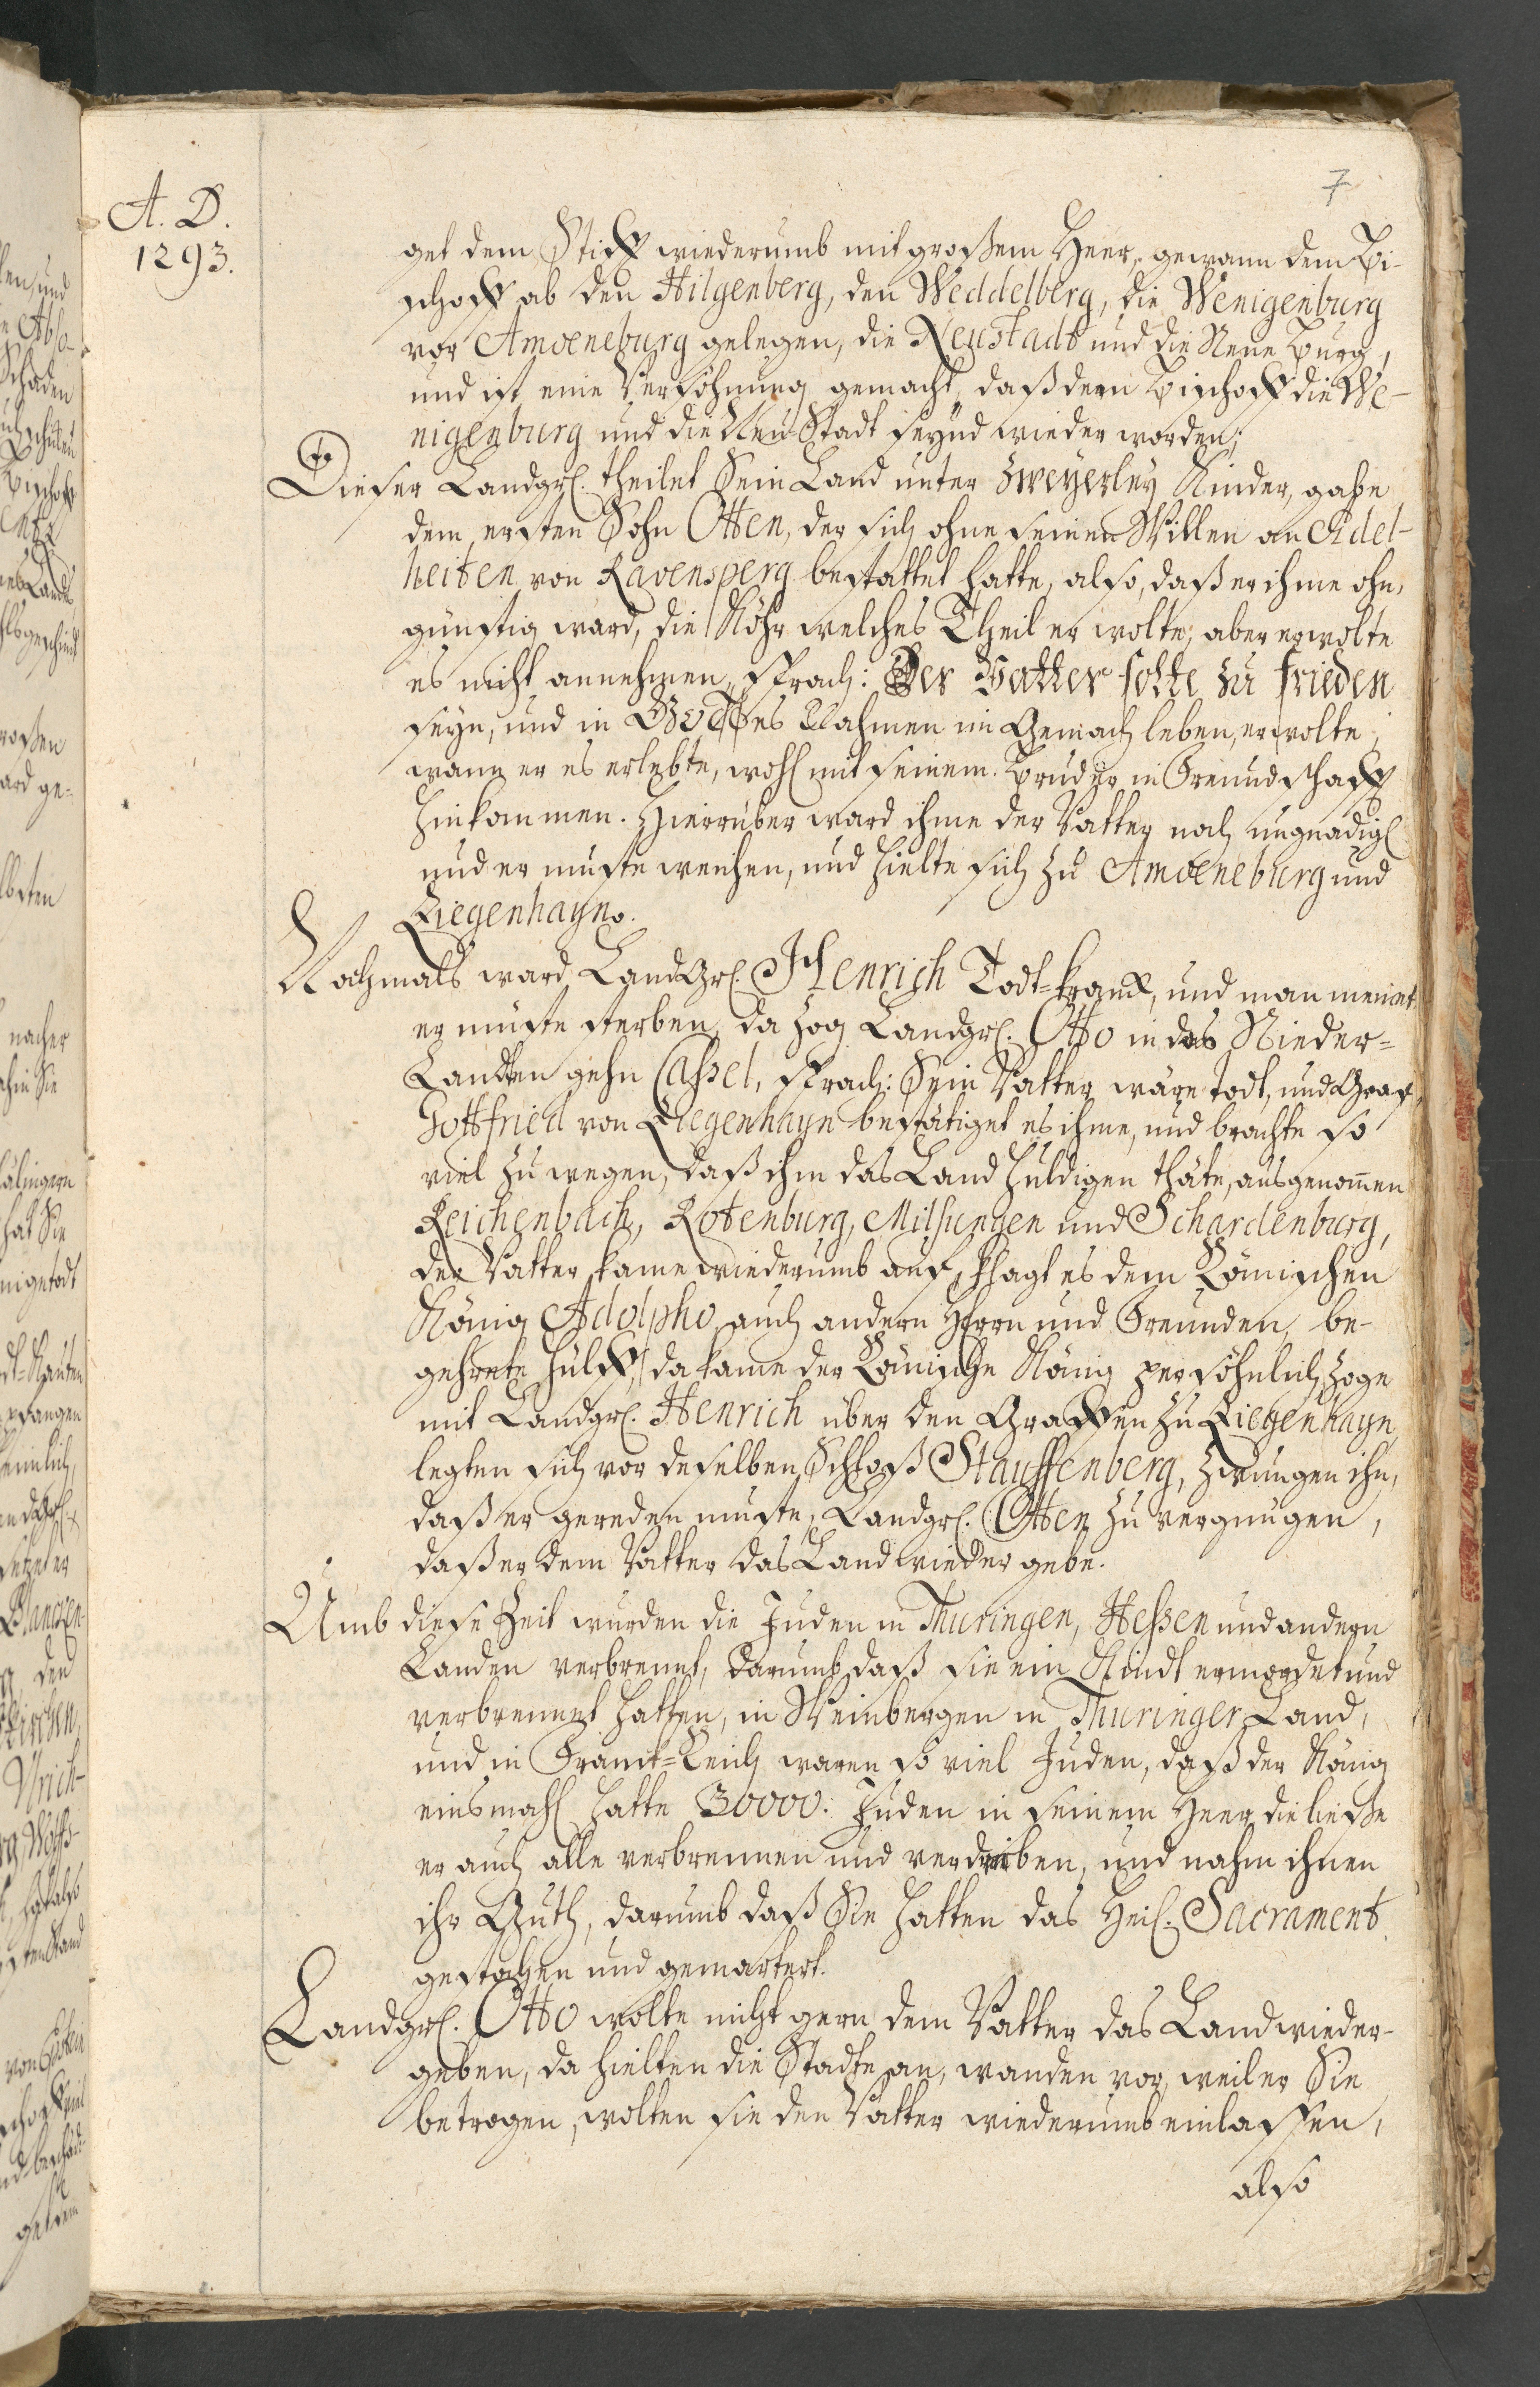 7
A. D.
1293.
get dem Stifft wiederumb mit großem Heer, gewann dem Bi-
schoff ab den Hilgenberg, den Weddelberg, die Wenigenburg
vor Amoeneburg gelegen, die Neustadt und die Neue Burg,
und ist eine Versöhnung gemacht, daß dem Bischoff die We-
nigenburg und die Neu-Stadt seynd wieder worden;
Dieser Landgrf. theilet Sein Land unter zweyerley Kinder, gabe
dem ersten Sohn Otten, der sich ohne seinen Willen an Adel-
heiten von Ravensperg bestattet hatte, also, daß er ihme ohn-
günstig ward, die Köhr welches Theil er wolte, aber er wolte
es nicht annehmen, sprach: Der Vatter solte zu frieden
seyn, und in Gottes Nahmen im Gemach leben, er wolte,
wann er es erlebte, wohl mit seinem Bruder in Freundschafft
hinkommen. Hierrüber ward ihme der Vatter noch ungnädigl.
und er muste weichen, und hielte sich zu Amoeneburg und
Ziegenhayn.
Nachmals ward LandGrf. Henrich Todt-kranck, und man meinet
er müste sterben, da zog Landgrf. Otto in das Nieder-
Landten gehn Cassel, sprach: Sein Vatter wäre todt, und Graf
Gottfried von Ziegenhayn bestätiget es ihme, und brachte so
viel zu wegen, daß ihm das Land huldigen thäte, ausgenom̄en
Reichenbach, Rotenburg, Milsungen und Schardenburg,
der Vatter kame wiederumb auf, klagt es dem Römischen
König Adolpho, auch andern Herrn und Freunden, be-
gehrete hülff, da kame der Römische König persöhnlich, zoge
mit Landgrf. Henrich über den Graffen zu Ziegenhayn,
legten sich vor deselben Schloß Stauffenberg, zwungen ihn,
daß er gereden muste, Landgrf. Otten zu vergnügen,
daß er dem Vatter das Land wieder gebe.
Umb diese Zeit wurden die Juden in Thuringen, Hessen und andern
Landen verbrennt, darumb daß sie ein Kindt ermordet und
verbrennet hatten, in Weinbergen in Thuringer Land,
und in Franck-Reich waren so viel Juden, daß der König
einsmahl hatte 30000. Juden in seinem Heer, die liesse
er auch alle verbrennen und verdreiben, und nahm ihnen
ihr Guth, darumb daß Sie hatten das Heil. Sacrament
gestochen und gemartert.
Landgrf. Otto wolte nicht gern dem Vatter das Land wieder-
geben, da hielten die Stadte an, wanden vor, weil er Sie
betrogen, wolten sie den Vatter wiederumb einlassen,
also